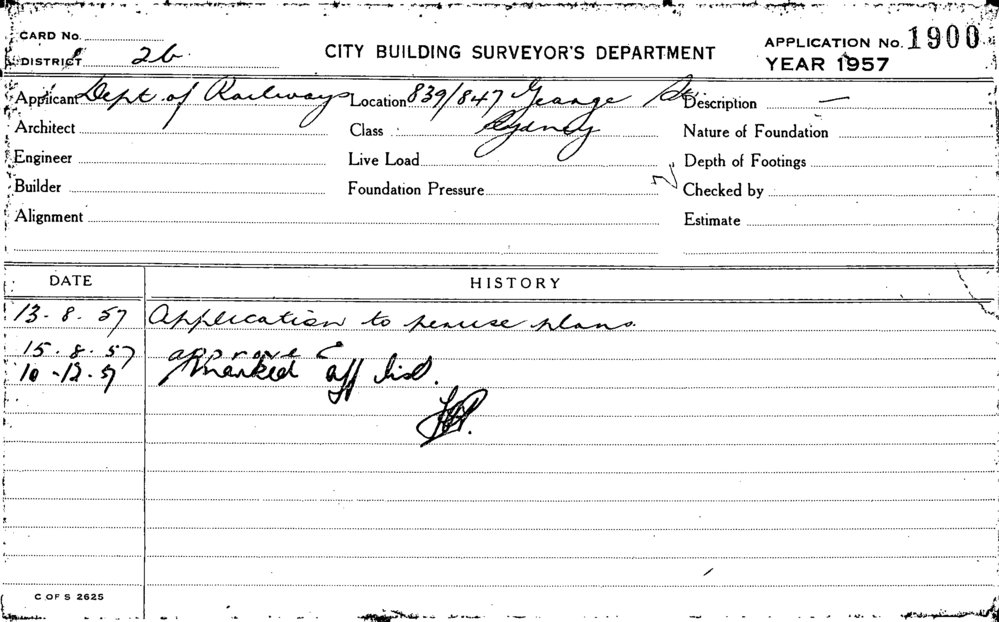 CARD No.
CITY BUILDING SURVEYOR'S DEPARTMENT
APPLICATION No. 1900
DISTRICT 2b
YEAR 1957
Applicant Dept of Railways Location 839/847 George St Description —
Architect Class Sydney Nature of Foundation
Engineer Live Load Depth of Footings
Builder Foundation Pressure Checked by
Alignment Estimate
DATE HISTORY
13. 8. 57 Application to peruse plans.
15. 8. 57 approve
10-12-57 Marked off list.
C OF S 2625